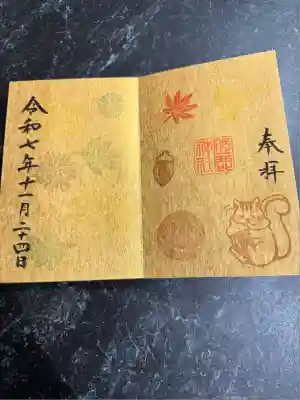 奉拝
令和七年十一月二十四日